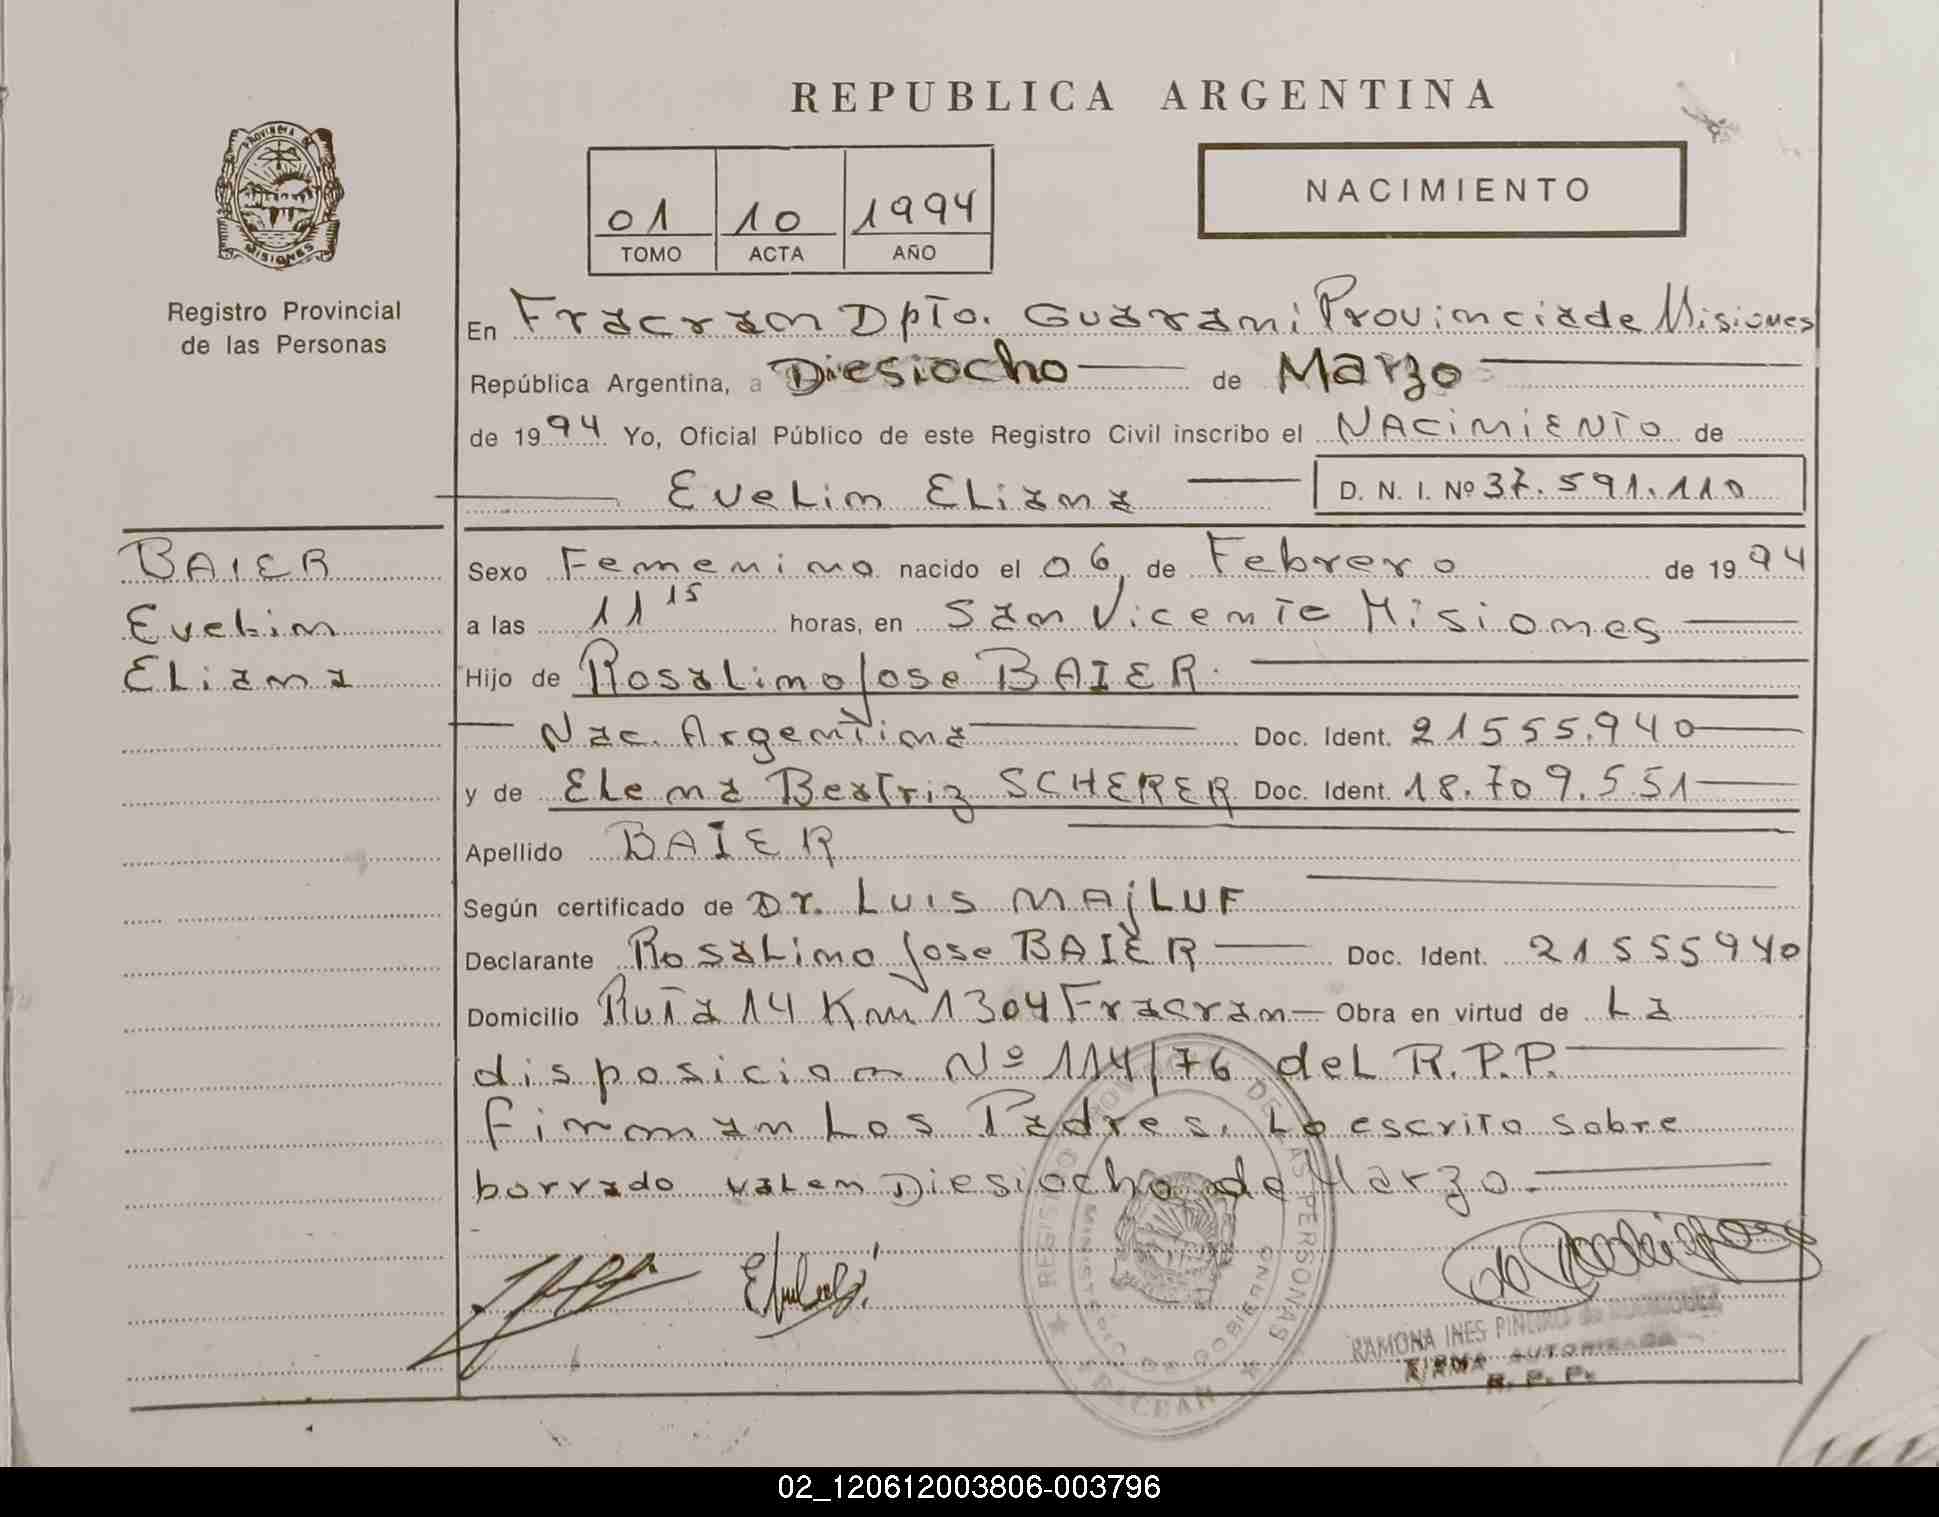 REPUBLICA ARGENTINA
PROVINCIA DE
MISIONES
Registro Provincial
de las Personas
01 10 1994
TOMO ACTA AÑO
NACIMIENTO
En Fracran Dpto. Guarani Provincia de Misiones
República Argentina, a Diesiocho de Marzo
de 1994 Yo, Oficial Público de este Registro Civil inscribo el NACimiENTo de
Evelin Eliana D. N. I. Nº 37.591.110
BAIER
Evelin
Eliana
Sexo Femenino nacido el 06 de Febrero de 1994
a las 11 15 horas, en San Vicente Misiones
Hijo de Rosalino Jose BAIER.
Nac. Argentina Doc. Ident. 21555.940
y de Elena Beatriz SCHERER Doc. Ident. 18.709.551
Apellido BAIER
Según certificado de Dr. LUIS MAjLUF
Declarante Rosalino Jose BAIER Doc. Ident. 21555940
Domicilio Ruta 14 Km 1304 Fracran Obra en virtud de La
disposicion Nº 114/76 del R.P.P.
Firman Los Padres. Lo escrito sobre
borrado valen Diesiocho de Marzo.
REGISTRO PROVINCIAL DE LAS PERSONAS
MINISTERIO DE GOBIERNO
FRACRAN
RAMONA INES PINEIRO de RODRIGUEZ
FIRMA AUTORIZADA
R. P. P.
02_120612003806-003796